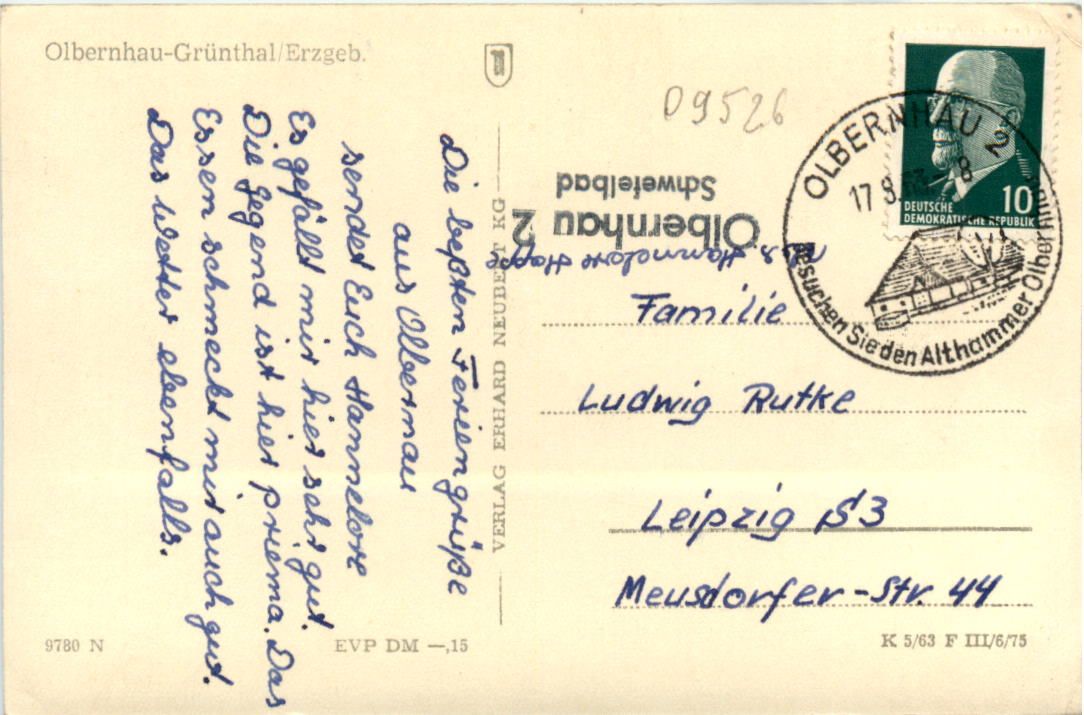 Olbernhau-Grünthal/Erzgeb.
D9526
OLBERNHAU 2
17.8.63-8
Besuchen Sie den Althammer Olbernhau
10
DEUTSCHE
DEMOKRATISCHE REPUBLIK
Olbernhau 2
Schwefelbad
Die beßten Feriengrüße
aus Olbernau
sendet Euch Hannelore
Es gefällt mir hier sehr gut.
Die Gegend ist hier priema. Das
Essen schmeckt mir auch gut.
Das Wetter ebenfalls.
Hannelore Hoppe
Familie
Ludwig Rutke
Leipzig S3
Meusdorfer-Str. 44
VERLAG ERHARD NEUBERT KG
9780 N
EVP DM —,15
K 5/63 F III/6/75